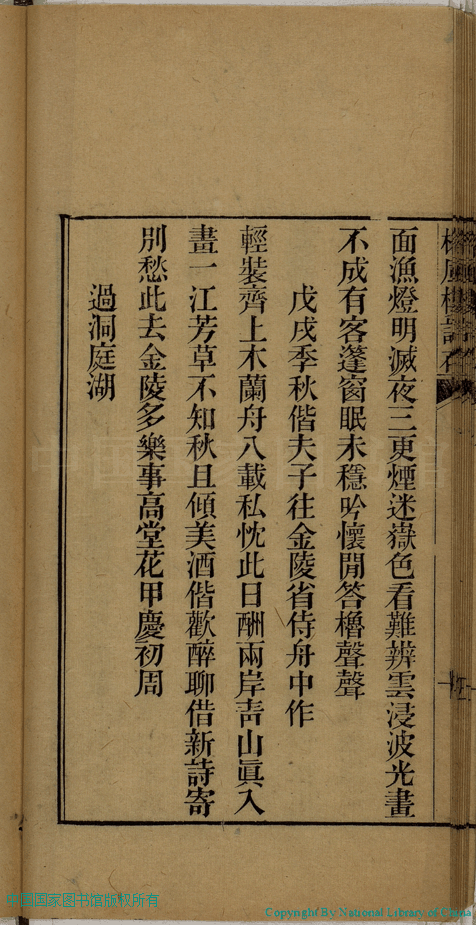 面漁燈明滅夜三更煙迷嶽色看難辨雲浸波光畫
不成有客蓬窗眠未穩吟懷閒答櫓聲聲
戊戌季秋偕夫子往金陵省侍舟中作
輕裝齊上木蘭舟八載私忱此日酬兩岸靑山眞入
畫一江芳草不知秋且傾美酒偕歡醉聊借新詩寄
別愁此去金陵多樂事高堂花甲慶初周
過洞庭湖
中国国家图书馆
中国国家图书馆版权所有
Copyright By National Library of China